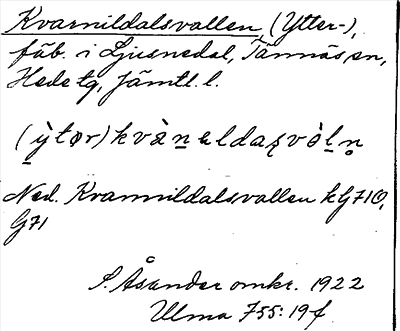 Kvarnildalsvallen, (Ytter-),
fäb. i Ljusnedal, Tännäs sn,
Hede tg, Jämtl. l.
(ỳtər) kvàneldaʂvòln
Ned. Kvarnildalsvallen kG710,
G71
S. Åsander omkr. 1922
Ulma 755:19 f